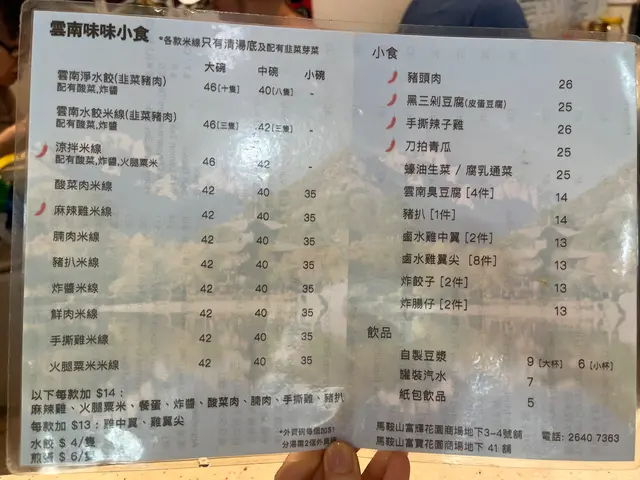 雲南味味小食 *各款米線只有清湯底及配有韭菜芽菜
大碗 中碗 小碗
雲南淨水餃(韭菜豬肉) 46[十隻] 40[八隻] -
配有酸菜,炸醬
雲南水餃米線(韭菜豬肉) 46[三隻] 42[三隻] -
配有酸菜,炸醬
涼拌米線 46 42 -
配有酸菜,炸醬,火腿粟米
酸菜肉米線 42 40 35
麻辣雞米線 42 40 35
腩肉米線 42 40 35
豬扒米線 42 40 35
炸醬米線 42 40 35
鮮肉米線 42 40 35
手撕雞米線 42 40 35
火腿粟米米線 42 40 35
以下每款加 $14:
麻辣雞、火腿粟米、餐蛋、炸醬、酸菜肉、腩肉、手撕雞、豬扒
每款加 $13:雞中翼、雞翼尖
水餃 $ 4/隻
煎蛋 $ 6/隻
*外賣碗每個加$1
分湯需2個外賣碗
小食
豬頭肉 26
黑三剁豆腐(皮蛋豆腐) 25
手撕辣子雞 26
刀拍青瓜 25
蠔油生菜 / 腐乳通菜 25
雲南臭豆腐 [4件] 14
豬扒 [1件] 14
鹵水雞中翼 [2件] 13
鹵水雞翼尖 [8件] 13
炸餃子 [2件] 13
炸腸仔 [2件] 13
飲品
自製豆漿 9 [大杯] 6 [小杯]
罐裝汽水 7
紙包飲品 5
馬鞍山富輝花園商場地下3-4號舖 電話: 2640 7363
馬鞍山富寶花園商場地下 41 舖